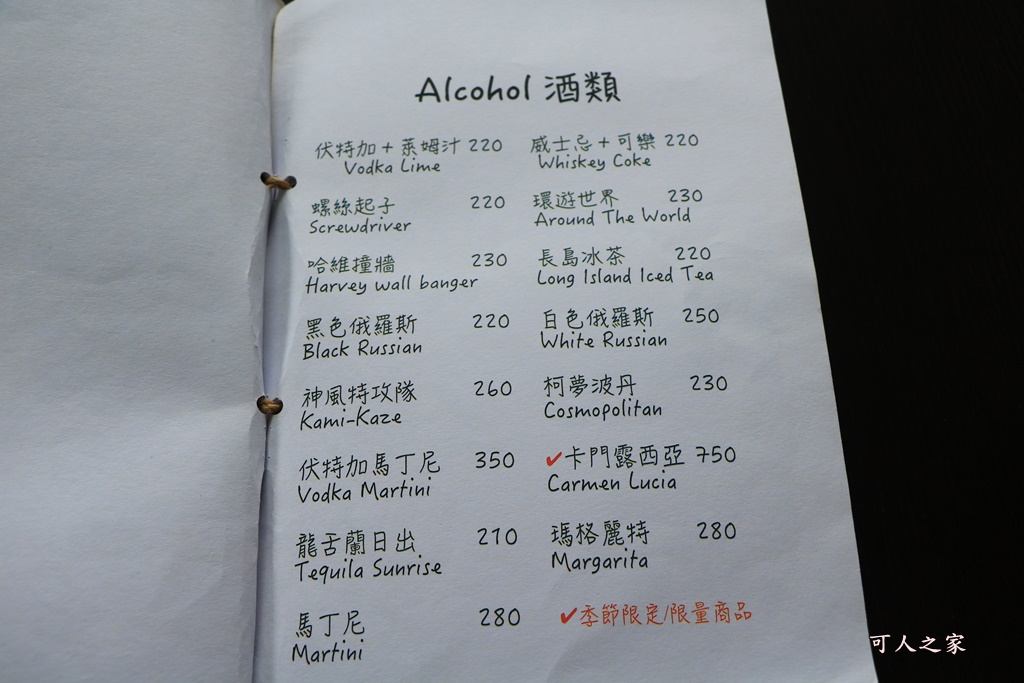 Alcohol 酒類
伏特加+萊姆汁 220
Vodka Lime
威士忌+可樂 220
Whiskey Coke
螺絲起子 220
Screwdriver
環遊世界 230
Around The World
哈維撞牆 230
Harvey wall banger
長島冰茶 220
Long Island Iced Tea
黑色俄羅斯 220
Black Russian
白色俄羅斯 250
White Russian
神風特攻隊 260
Kami-Kaze
柯夢波丹 230
Cosmopolitan
伏特加馬丁尼 350
Vodka Martini
✔卡門露西亞 750
Carmen Lucia
龍舌蘭日出 210
Tequila Sunrise
瑪格麗特 280
Margarita
馬丁尼 280
Martini
✔季節限定/限量商品
可人之家